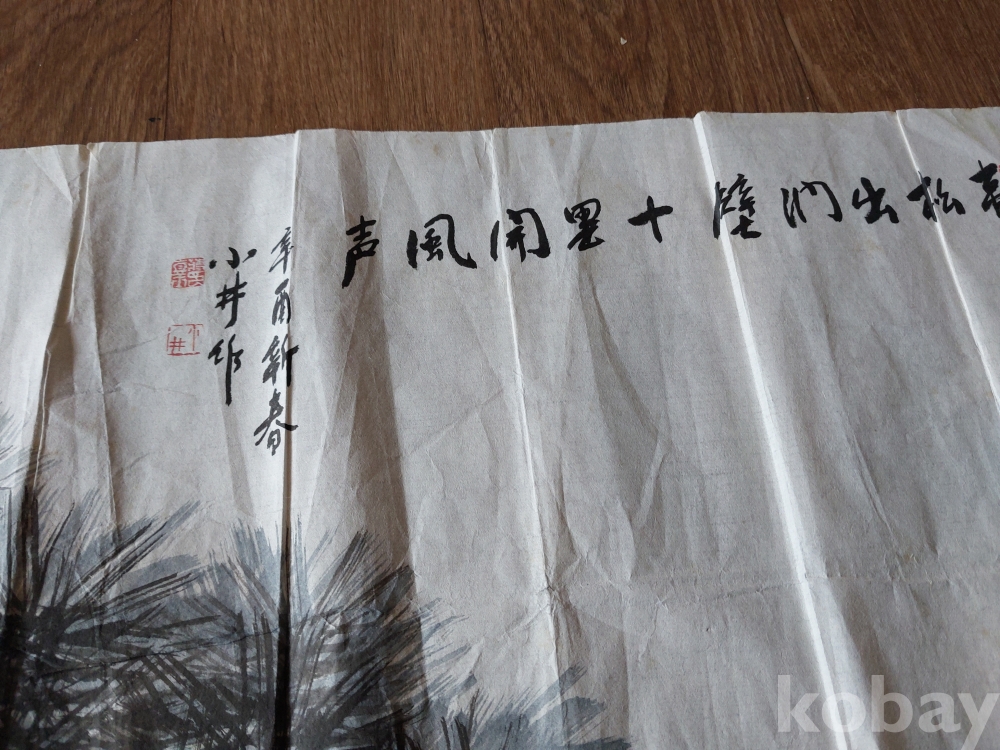 松出涧壁十里開風声
辛酉新春
小井作
小井
kobay